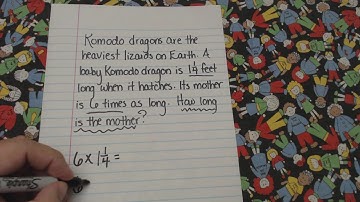 Komodo dragons are the
heaviest lizards on Earth. A
baby Komodo dragon is 1 1/4 feet
long when it hatches. Its mother
is 6 times as long. How long
is the mother?
6 x 1 1/4 =
Sharpie